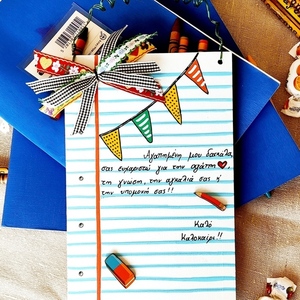 Αγαπημένη μου δασκάλα,
σας ευχαριστώ για την αγάπη ❤,
τη γνώση, την αγκαλιά σας &
την υπομονή σας!!
Καλό
Καλοκαίρι!!